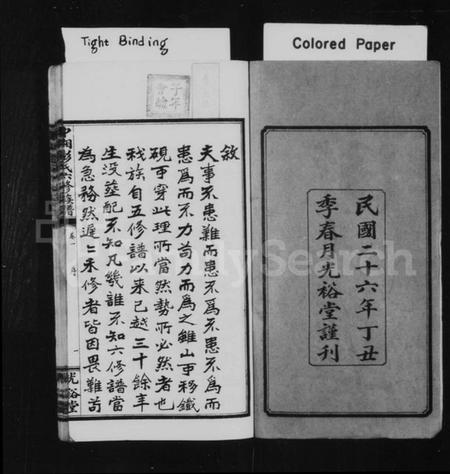 Tight Binding
Colored Paper
民國二十六年丁丑
季春月光裕堂謹刊
敘
夫事不患難而患不為不患不為而
患為而不力苟力而為之雖山可移鐵
硯可穿此理所當然勢所必然者也
我族自五修譜以來已越三十餘年
生沒葬配不知凡幾誰不知六修譜當
為急務然遲遲未修者皆因畏難苟
中湘彭氏六修族譜
卷一
序
一
光裕堂
FamilySearch